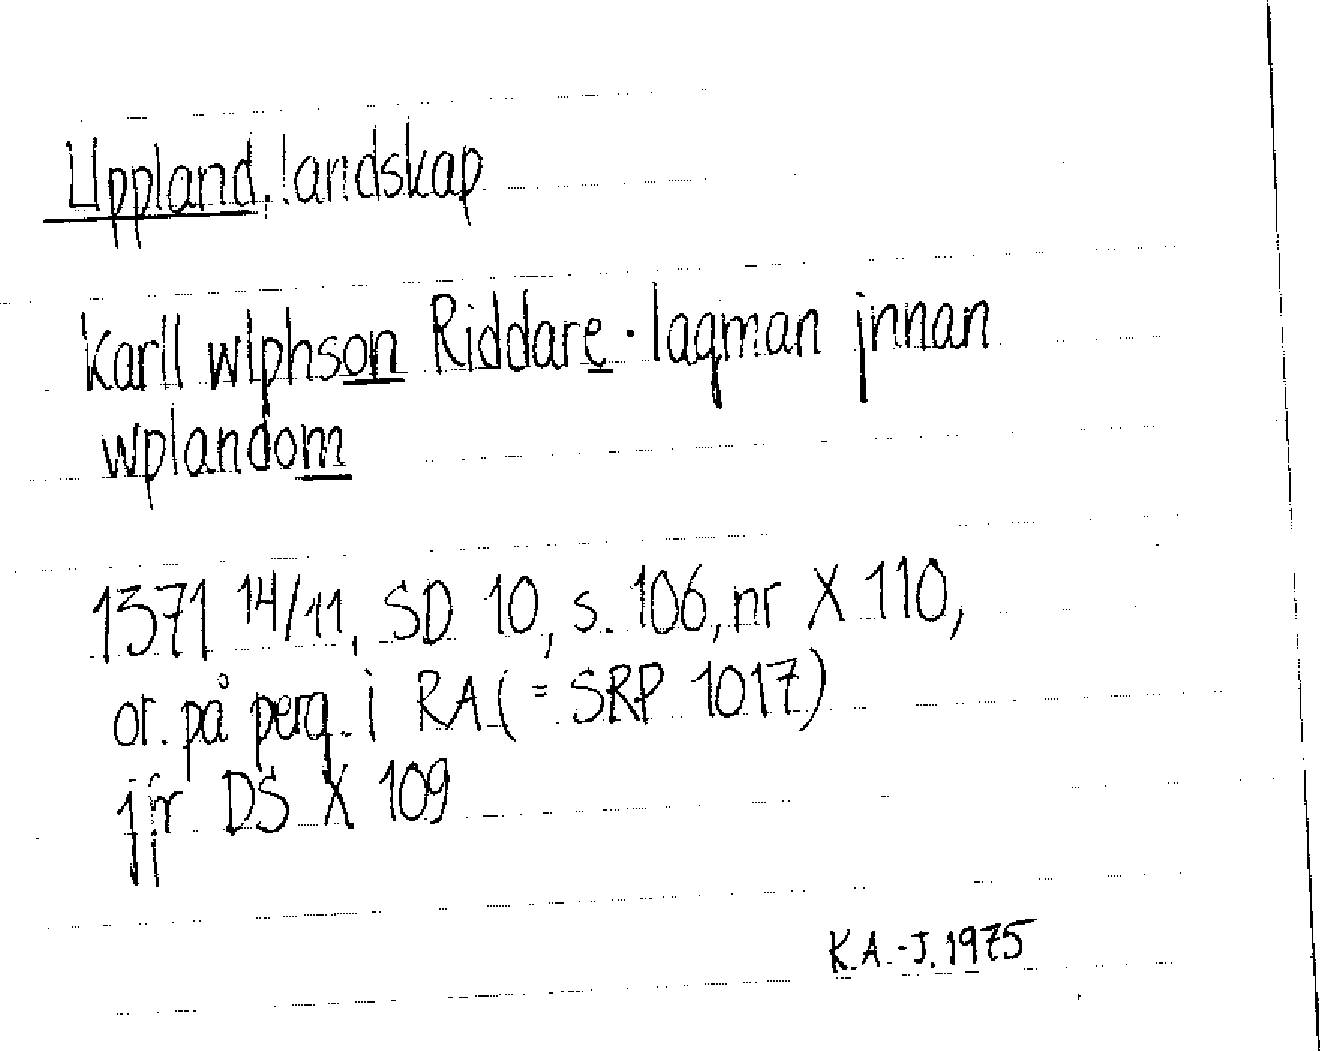 Uppland, landskap
Karll wlphson Riddare · lagman jnnan
wplandom
1371 14/11, SD 10, s. 106, nr X 110,
or. på perg. i RA (= SRP 1017)
jfr DS X 109
K.A.-J. 1975